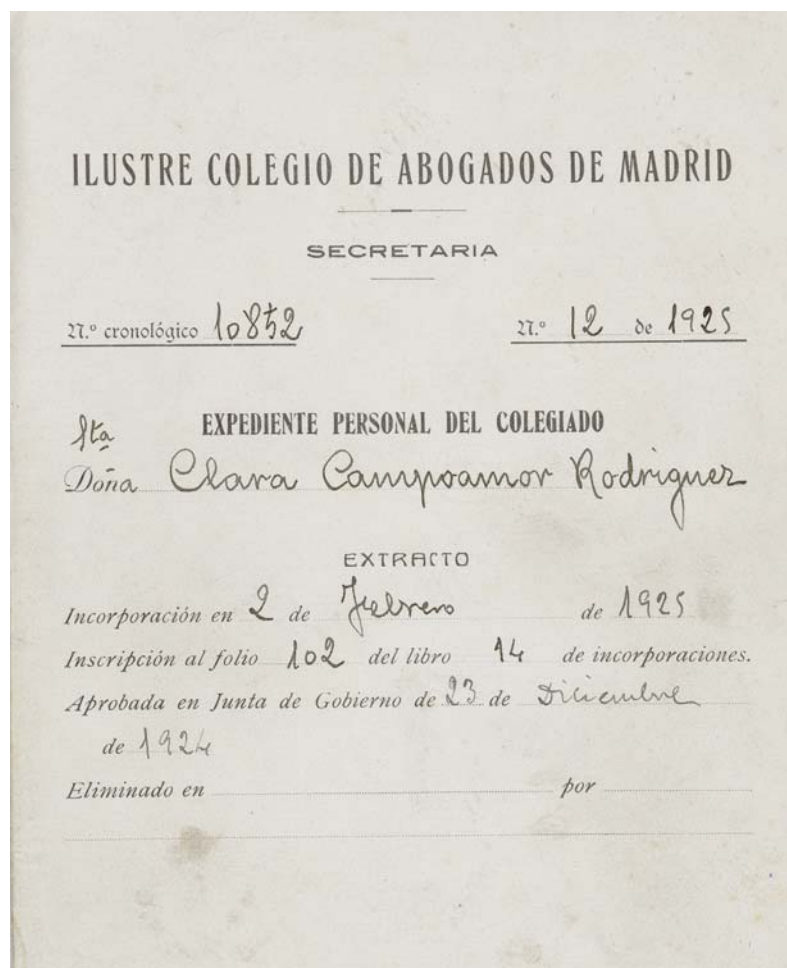 ILUSTRE COLEGIO DE ABOGADOS DE MADRID
SECRETARIA
N.º cronológico 10852
N.º 12 de 1925
EXPEDIENTE PERSONAL DEL COLEGIADO
Sta
Doña Clara Campoamor Rodriguez
EXTRACTO
Incorporación en 2 de Febrero de 1925
Inscripción al folio 102 del libro 14 de incorporaciones.
Aprobada en Junta de Gobierno de 23 de Diciembre
de 1924
Eliminado en por